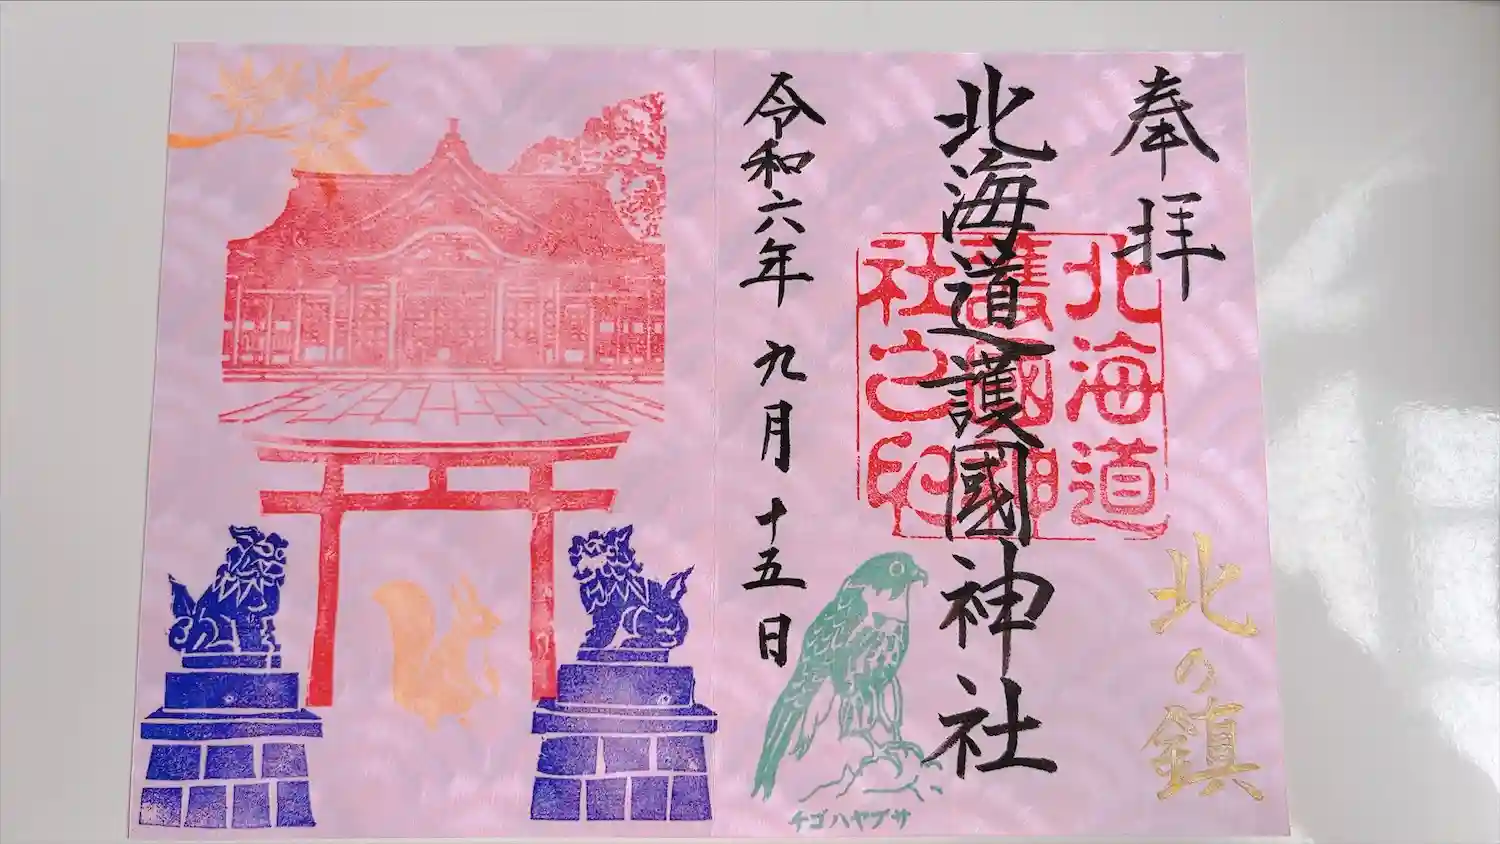 奉拝
北の鎮
北海道護國神社
北海道
護國神
社之印
令和六年九月十五日
チゴハヤブサ